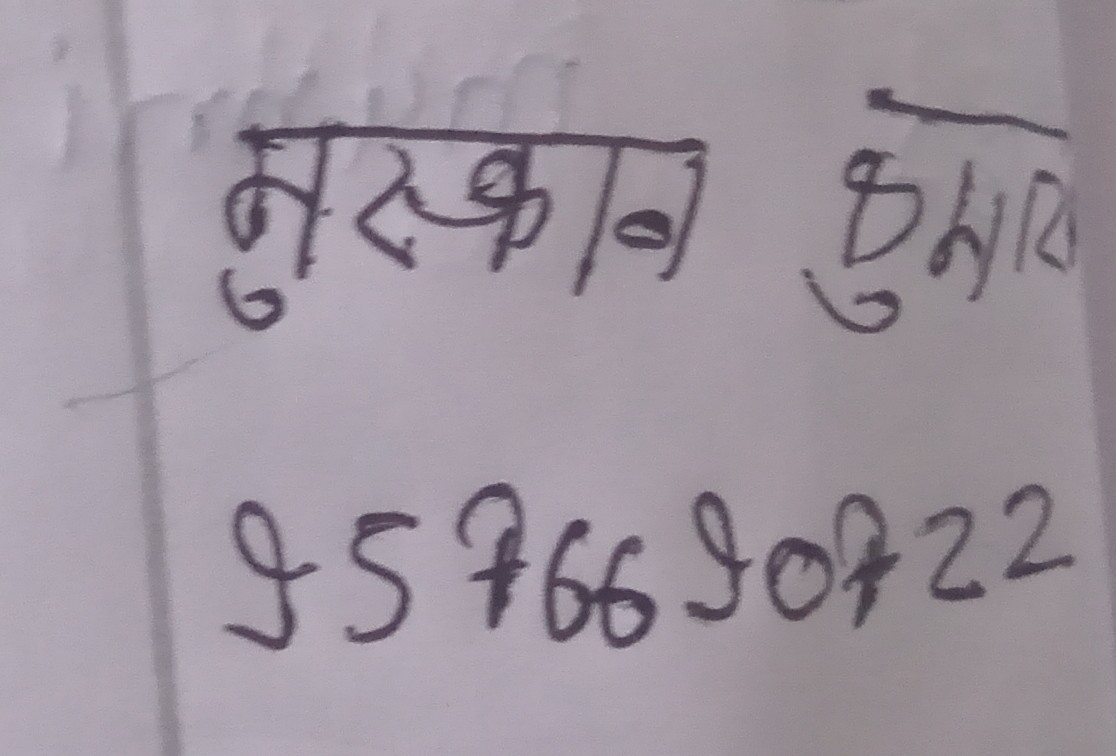 मुस्कान कुमारी
9576690722